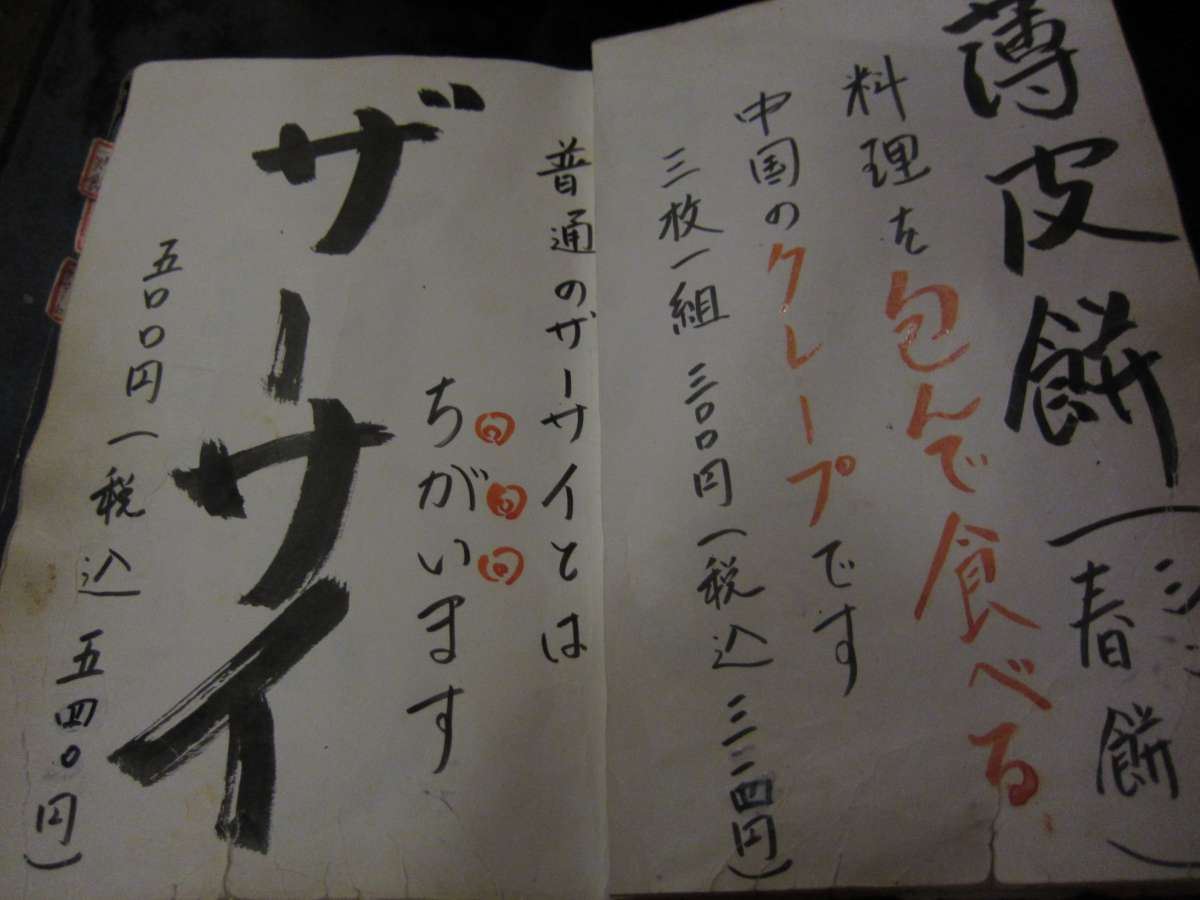 薄皮餅
(春餅)
料理を包んで食べる
中国のクレープです
三枚一組 三〇〇円(税込 三二四円)
普通のザーサイとは
ちがいます
ザーサイ
五〇〇円(税込 五四〇円)